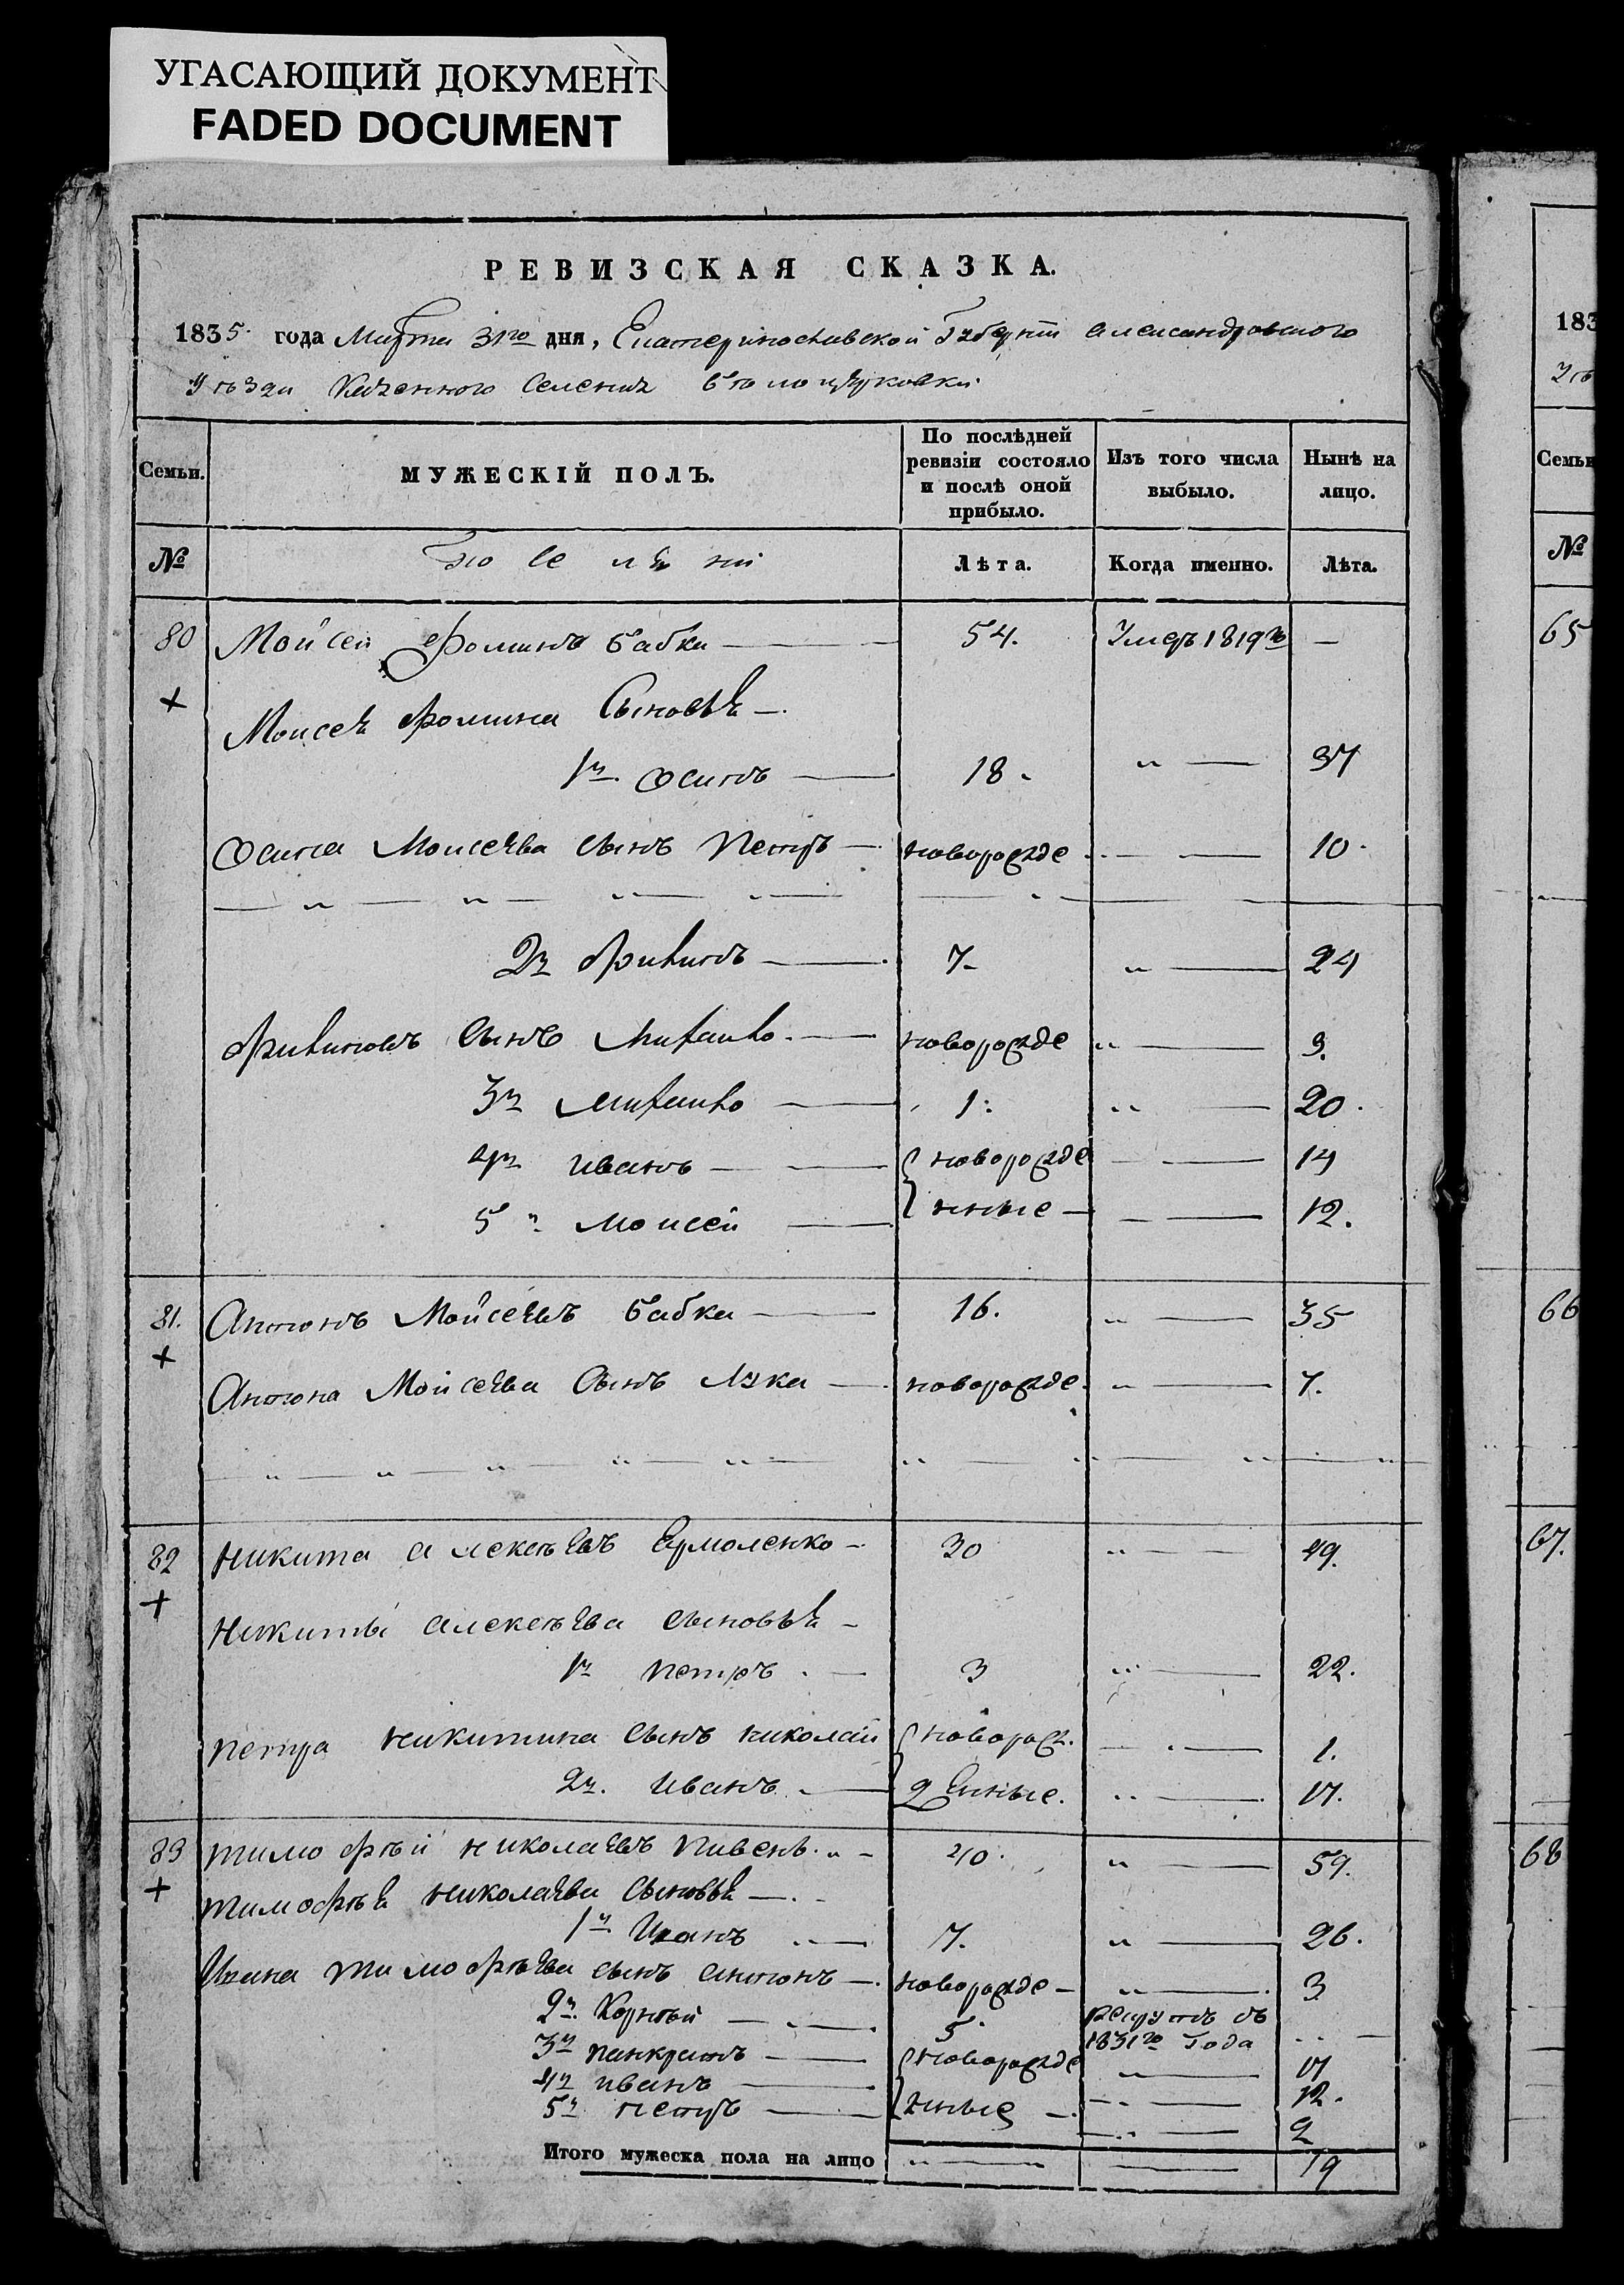 УГАСАЮЩИЙ ДОКУМЕНТ
FADED DOCUMENT
РЕВИЗСКАЯ СКАЗКА.
1835. года Марта 31го дня, Екатеринославской Губерніи Александровского
Уѣзда Казенного Селения Бѣлоцерковки
Семьи. МУЖЕСКІЙ ПОЛЪ. По послѣдней ревизіи состояло и послѣ оной прибыло. Изъ того числа выбыло. Нынѣ на лицо.
№ Поселяни Лѣта. Когда именно. Лѣта.
80 Мойсей Фоминъ бабка 54. Умеръ 1819го —
Моисея Фомина Сыновья —
1й Осипъ 18. " — 37
Осипа Моисеева сынъ Петръ — новорожде — 10.
2й Филипъ 7 " — 24
Филиповъ сынъ Михайло новорожде " — 3.
3й Михайло 1. " — 20.
4й Иванъ новорожде — 14
5й Моисей нные — 12.
81. Антонъ Мойсеевъ бабка 16. " — 35
Антона Мойсеева Сынъ Лука — новорожде " — 7.
82 Никита Алексѣевъ Ермоленко — 30 " — 49.
Никиты Алексѣева сыновья —
1й Петръ 3 " — 22.
Петра Никитина сынъ Николай новорож. — 1.
2й. Иванъ денные. " — 17.
83 Тимофѣй Николаевъ Пивень 40. " — 59.
Тимофѣя Николаева сыновья —
1й Иванъ 7. " — 26.
Ивана Тимофѣева сынъ Антонъ — новорожде — " — 3
2й Корнѣй 5. рекрутъ въ
1831го Года —
3й Панкратъ новорожде " — 17
4й Иванъ — 12.
5й Петръ нные — 2
Итого мужеска пола на лицо " — — 19
183
Семьи
№
65
66
67.
68